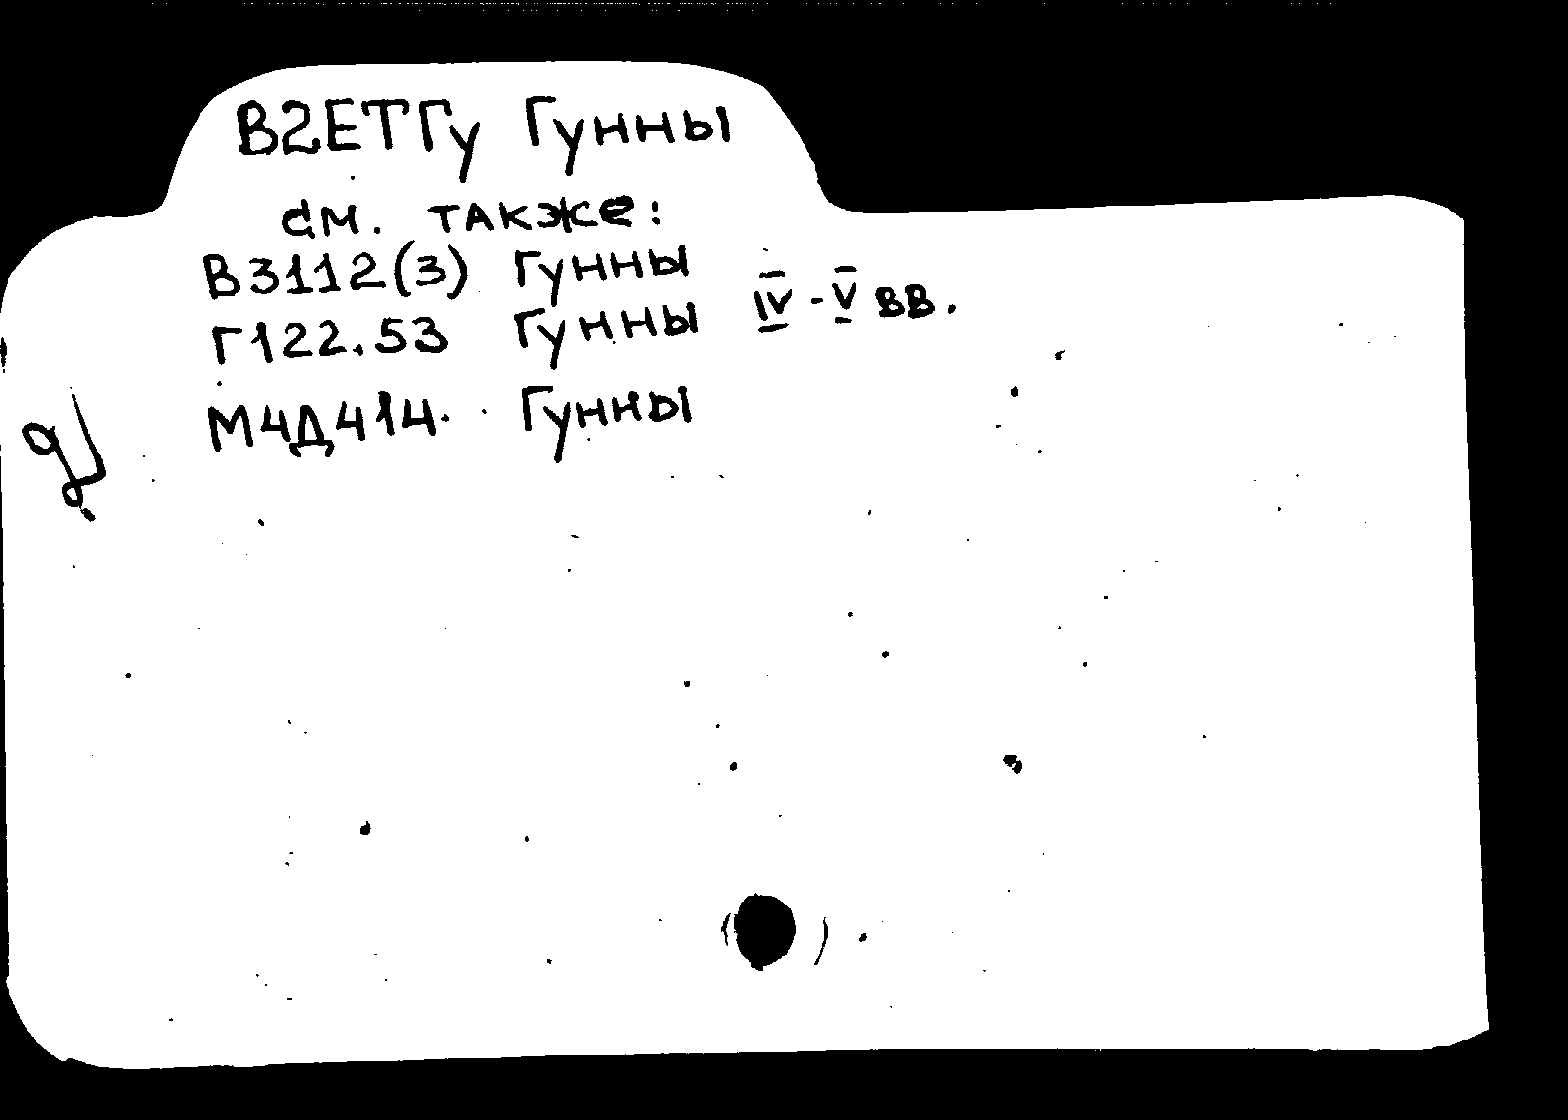 В2ЕТГу Гунны
см. также:
В3112(3) Гунны
Г122.53 Гунны IV-V вв.
М4Д414. Гунны